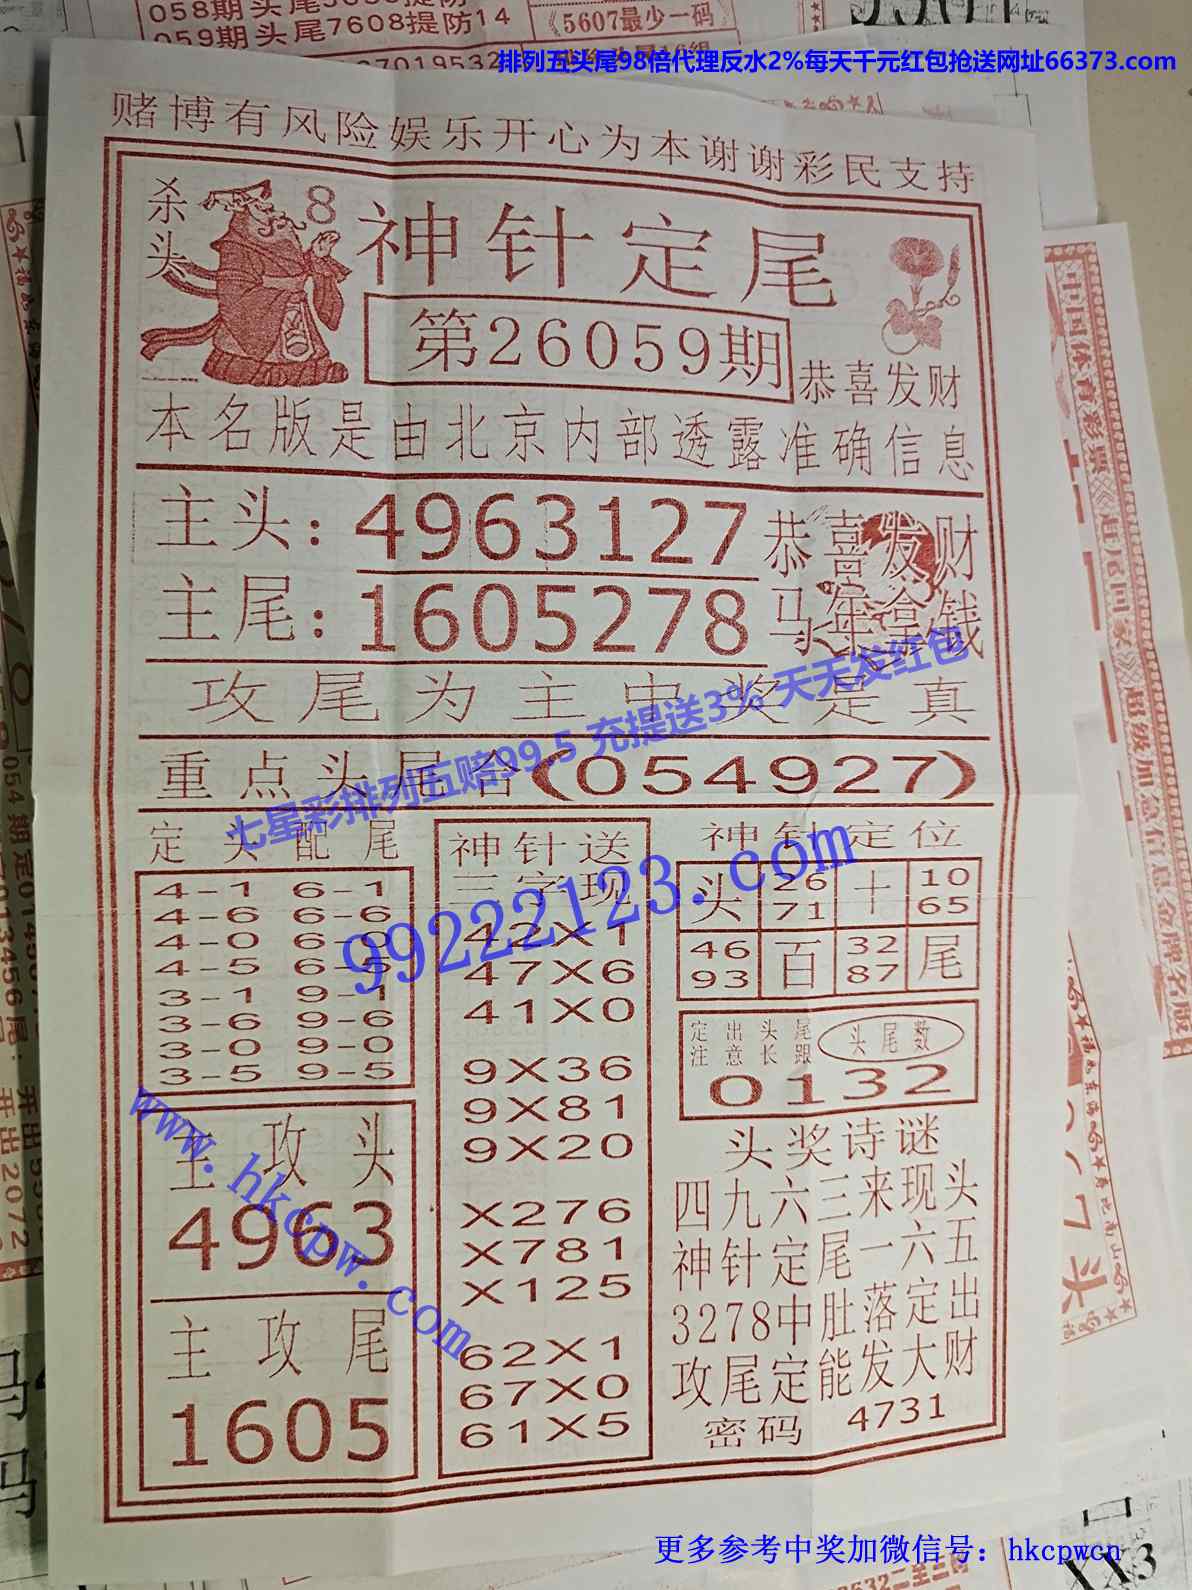 059期头尾7608提防14
《5607最少一码》
排列五头尾98倍代理反水2%每天千元红包抢送网址66373.com
赌博有风险娱乐开心为本谢谢彩民支持
杀头
8
神针定尾
第26059期
恭喜发财
本名版是由北京内部透露准确信息
主头:4963127
恭喜发财
主尾:1605278
马年拿钱
攻尾为主中奖是真
七星彩排列五赔99.5 充提送3% 天天发红包
重点头尾合(054927)
定头配尾
4-1 6-1
4-6 6-6
4-0 6-0
4-5 6-5
3-1 9-1
3-6 9-6
3-0 9-0
3-5 9-5
神针送
三字现
42X1
47X6
41X0
9X36
9X81
9X20
X276
X781
X125
62X1
67X0
61X5
99222123.com
神针定位
头 26 71 十 10 65
46 93 百 32 87 尾
定出头尾
注意长跟
头尾数
0132
主攻头
4963
主攻尾
1605
www.hkcpw.com
头奖诗谜
四九六三来现头
神针定尾一六五
3278中肚落定出
攻尾定能发大财
密码 4731
更多参考中奖加微信号：hkcpwcn
XX3